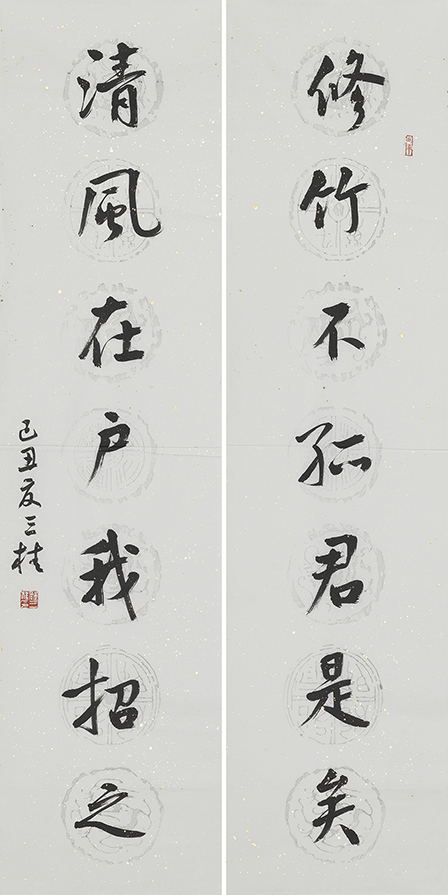 修竹不孤君是矣
清風在户我招之
己丑夏三桂